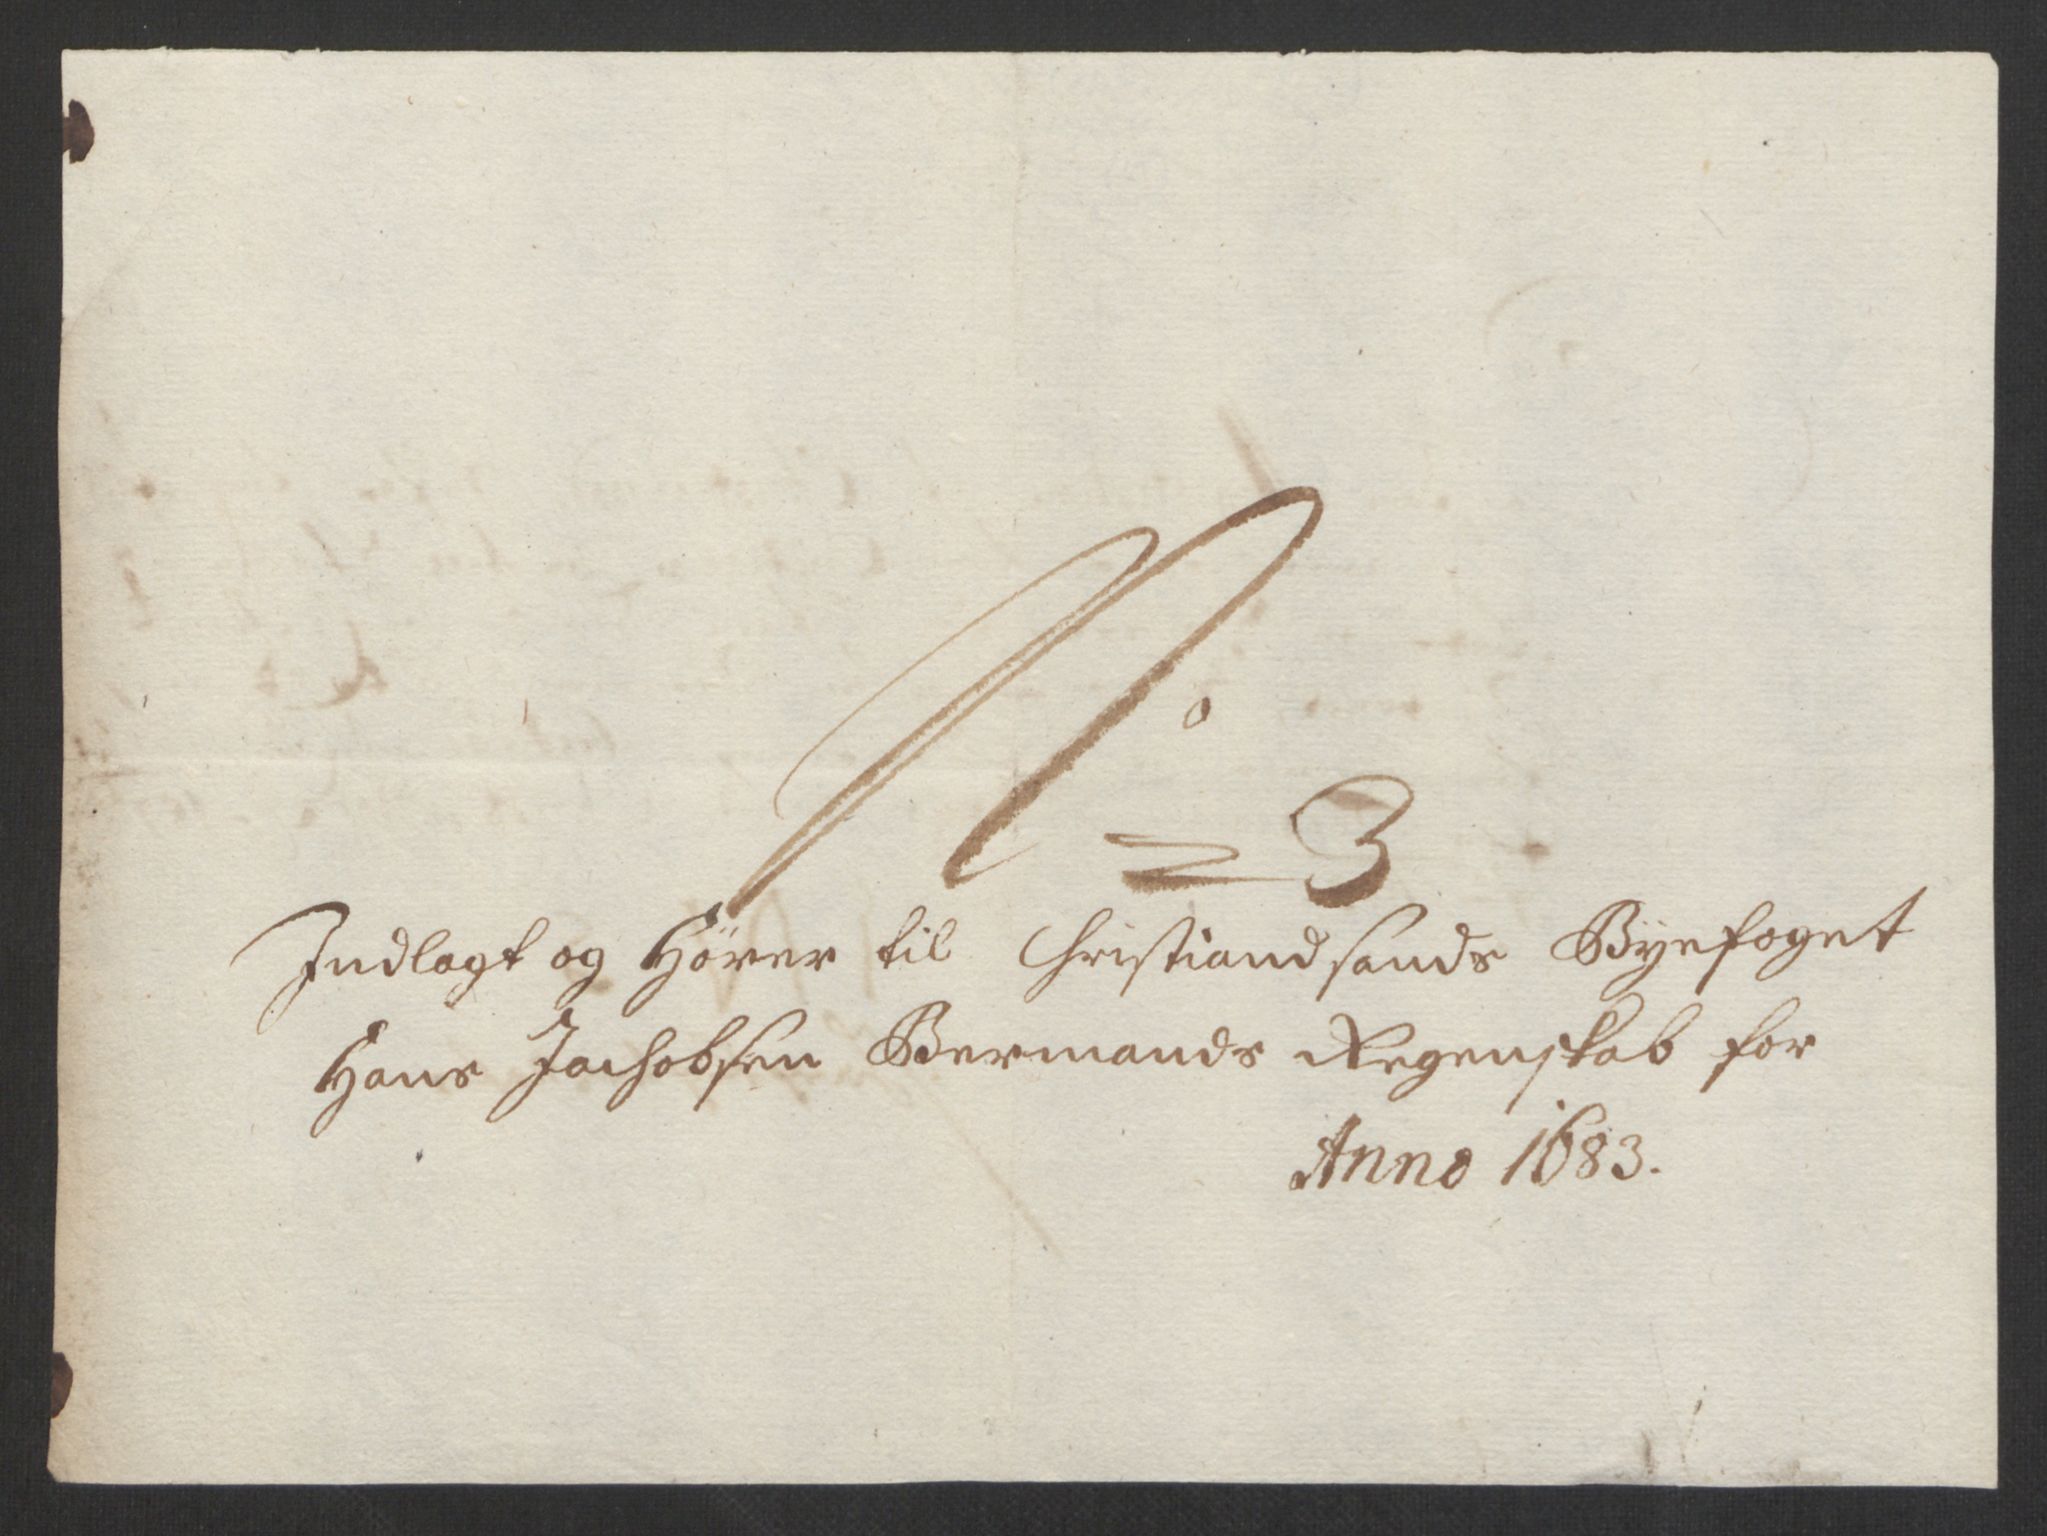 No 3
Indlagt og Hörer til Christiandsands Byefoget
Hans Jachobsen Bermands Regenskab for
Anno 1683.